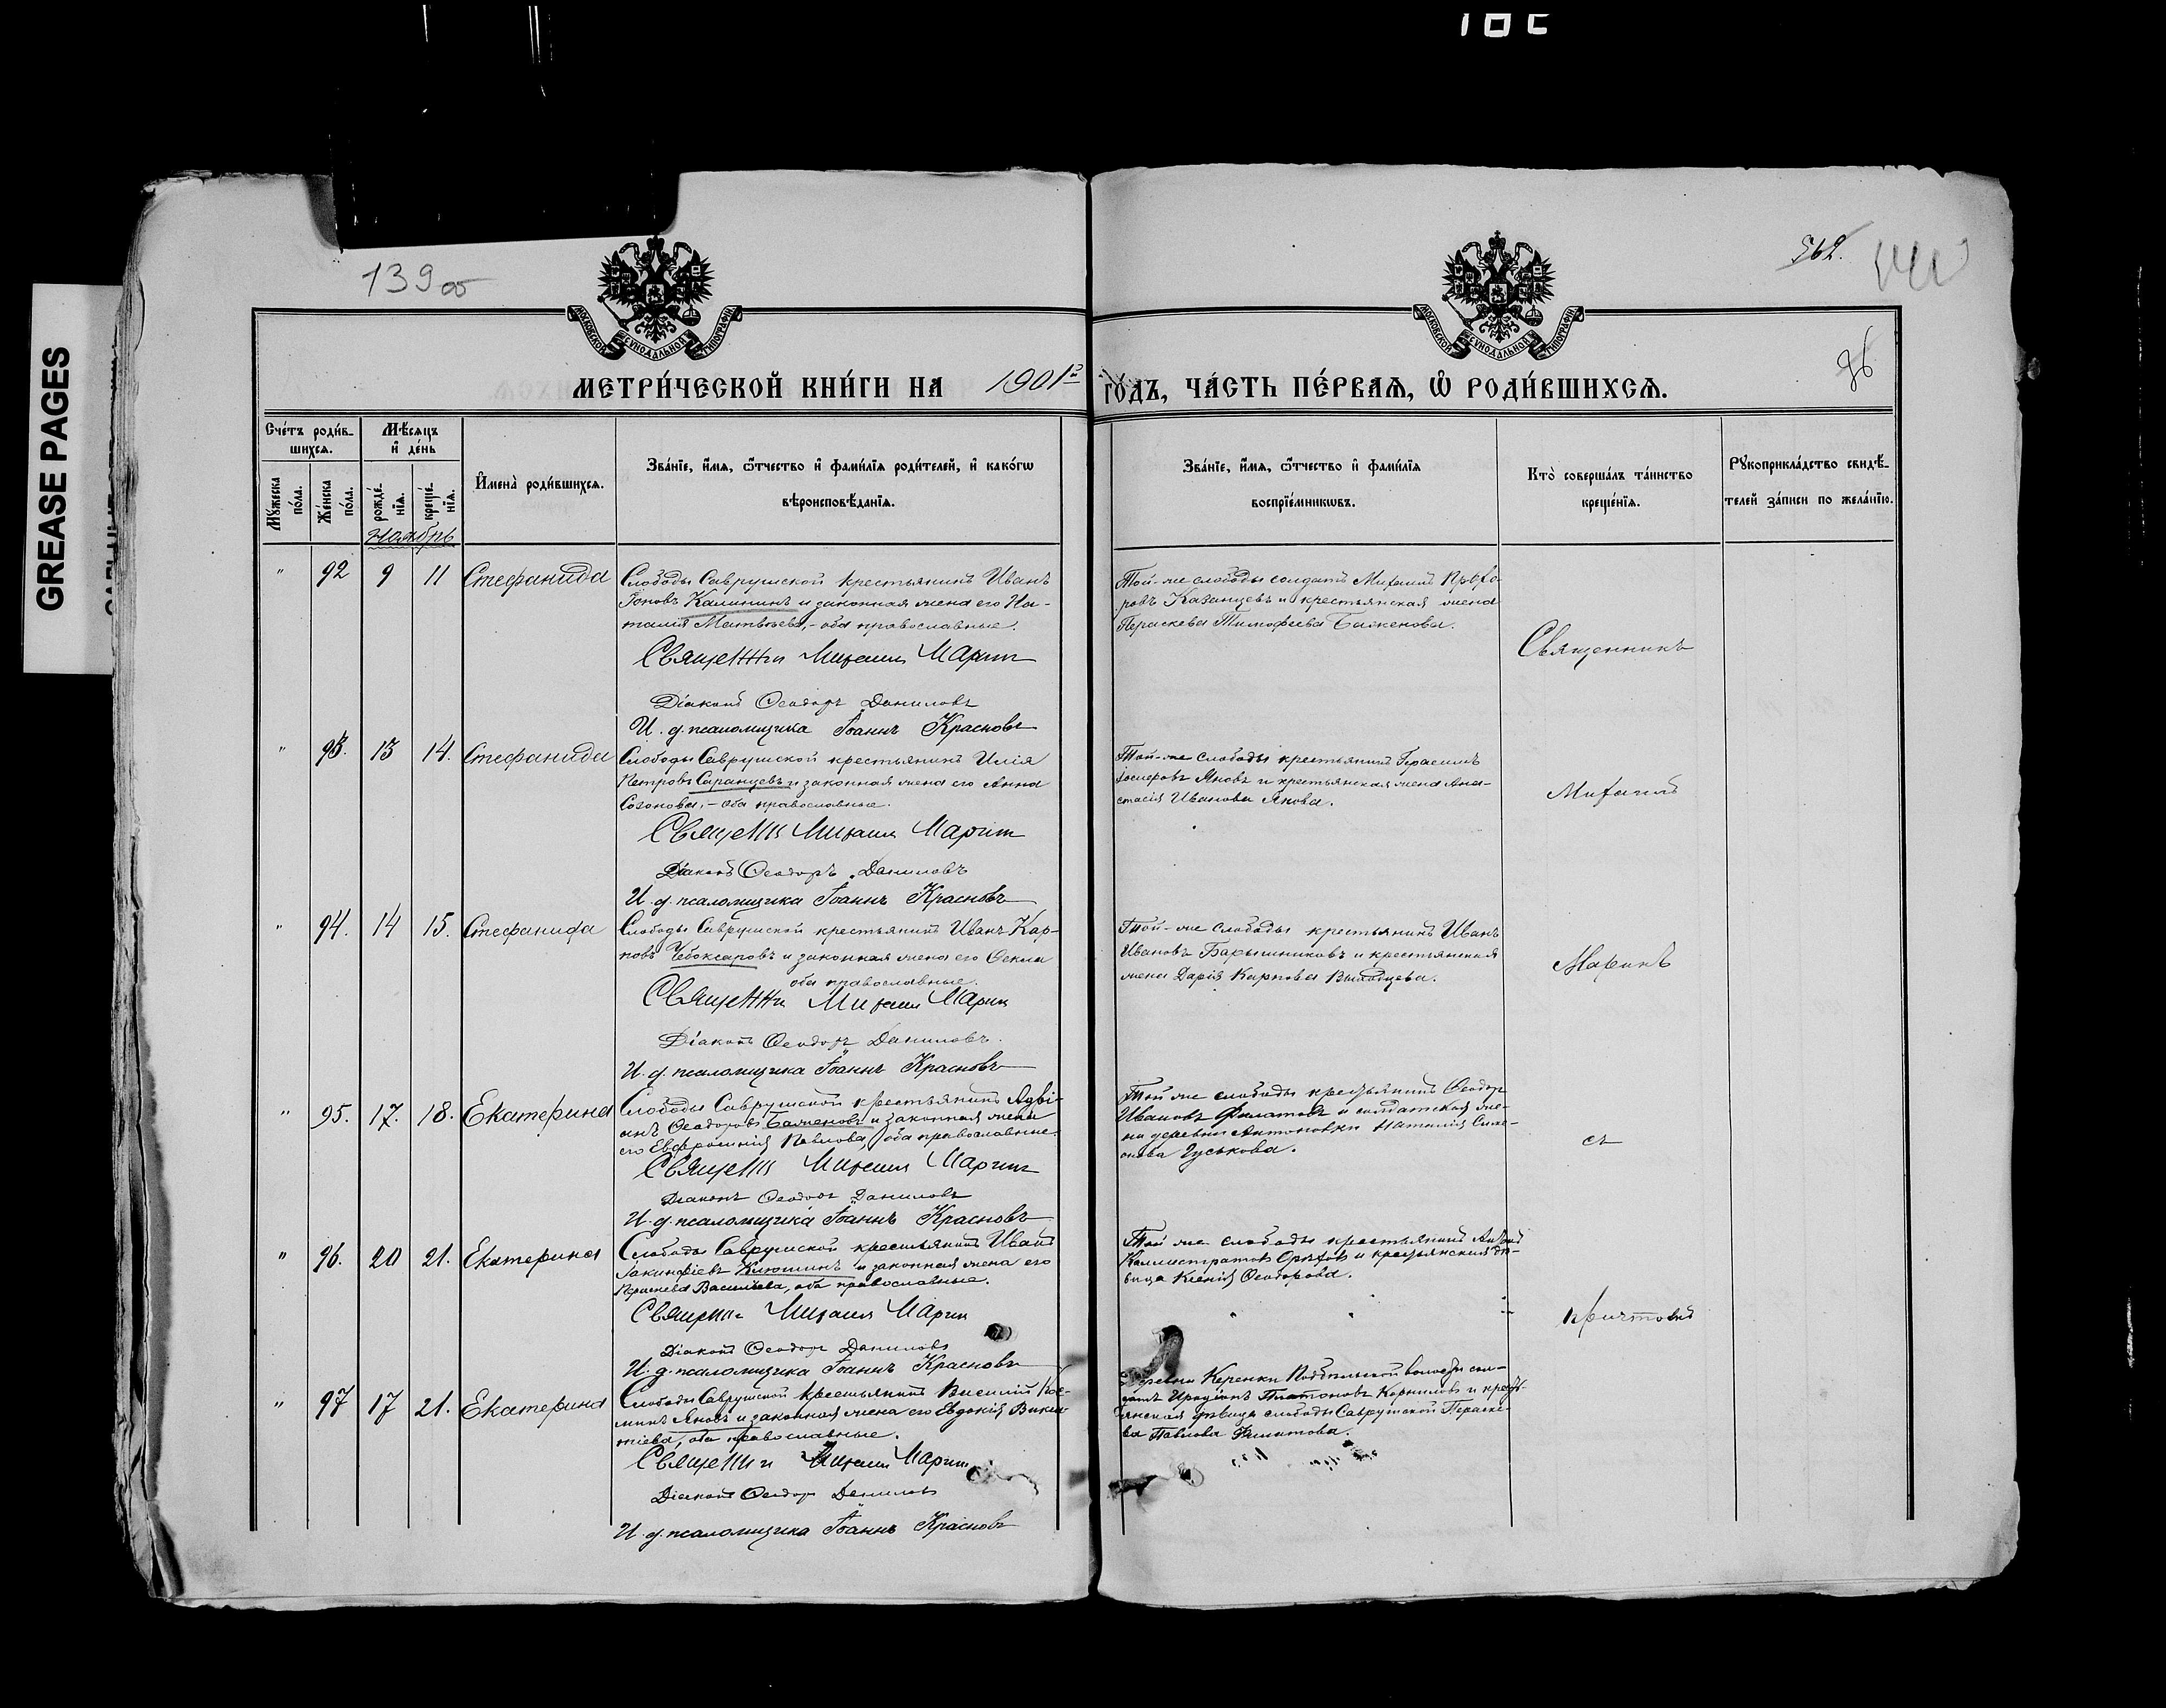 GREASE PAGES
139 об
562.
МОСКОВСКОЙ СѴНОДАЛЬНОЙ ТИПОГРАФІИ
МОСКОВСКОЙ СѴНОДАЛЬНОЙ ТИПОГРАФІИ
МЕТРИ́ЧЕСКОЙ КНИ́ГИ НА 1901 ГО́ДЪ, ЧА́СТЬ ПЕ́РВАѦ, Ѡ҆ РОДИ́ВШИХСѦ.
Сче́тъ роди́в-
шихсѧ.
Мꙋ́жеска
по́ла.
Же́нска
по́ла.
Мѣ́сѧцъ
и҆ де́нь
рожде́-
нїѧ.
креще́-
нїѧ.
Ноябрь
И҆мена̀ роди́вшихсѧ.
Зва́нїе, и҆́мѧ, ѻ҆́тчество и҆ фами́лїѧ роди́телей, и҆ како́гѡ
вѣроисповѣ́данїѧ.
Зва́нїе, и҆́мѧ, ѻ҆́тчество и҆ фами́лїѧ
воспрїе́мникѡвъ.
Кто̀ соверша́лъ та́инство
креще́нїѧ.
Рꙋкоприкла́дство свидѣ́-
телей за́писи по жела́нїю.
" 92 9 11 Стефанида
Слободы Саврушской крестьянинъ Иванъ
Іоновъ Калининъ и законная жена его На-
талія Матвѣева, - оба православные.
Священни Михаилъ Марин
Діаконъ Ѳеодоръ Даниловъ
И. д. псаломщика Іоаннъ Красновъ
Той-же слободы солдатъ Михаилъ Прохо-
ровъ Казанцевъ и крестьянская жена
Параскева Тимофеева Баженова.
Священникъ
" 93. 13 14. Стефанида
Слободы Саврушской крестьянинъ Илія
Петровъ Саранцевъ и законная жена его Анна
Созонова, - оба православные.
Священн Михаилъ Марин
Діаконъ Ѳеодоръ Даниловъ
И. д. псаломщика Іоаннъ Красновъ
Той-же слободы крестьянинъ Герасимъ
Яновъ и крестьянская жена Ана-
стасія Иванова Янова.
Михаилъ
" 94. 14 15. Стефанида
Слободы Саврушской крестьянинъ Иванъ Кар-
повъ Чебоксаровъ и законная жена его Ѳекла
оба православные.
Священни Михаилъ Марин
Діаконъ Ѳеодоръ Даниловъ.
И. д. псаломщика Іоаннъ Красновъ
Той-же слободы крестьянинъ Иванъ
Ивановъ Барышниковъ и крестьянская
жена Дарія Карпова
Маринъ
" 95. 17. 18. Екатерина
Слободы Саврушской крестьянинъ Адрі-
анъ Ѳеодоровъ Баженовъ и законная жена
его Евфросинія Павлова, оба православные.
Священн Михаилъ Марин
Діаконъ Ѳеодоръ Даниловъ
И. д. псаломщика Іоаннъ Красновъ
Той же слободы крестьянинъ Ѳеодоръ
Ивановъ Филатовъ и солдатская же-
на деревни Антоновки Наталія Симе-
онова Гуськова.
съ
" 96. 20 21. Екатерина
Слободы Саврушской крестьянинъ Иванъ
Іакинфіевъ Клюшинъ и законная жена его
Параскева Васильева, оба православные.
Михаилъ Марин
Діаконъ Ѳеодоръ Даниловъ
И. д. псаломщика Іоаннъ Красновъ
Той же слободы крестьянинъ
Каллистратовъ Орѣховъ и крестьянская дѣ-
вица Ксенія Ѳеодорова.
причтомъ
" 97 17 21. Екатерина
Слободы Саврушской крестьянинъ Василій Кос-
минъ Яновъ и законная жена его Евдокія Викен-
тіева, оба православные.
Священни Михаилъ Марин
Діаконъ Ѳеодоръ Даниловъ
И. д. псаломщика Іоаннъ Красновъ
Деревни Керенки Подбѣльской волости сол-
датъ Иродіонъ Платоновъ Корниловъ и кресть-
янская дѣвица слободы Саврушской Параске-
ва Павлова Филатова.